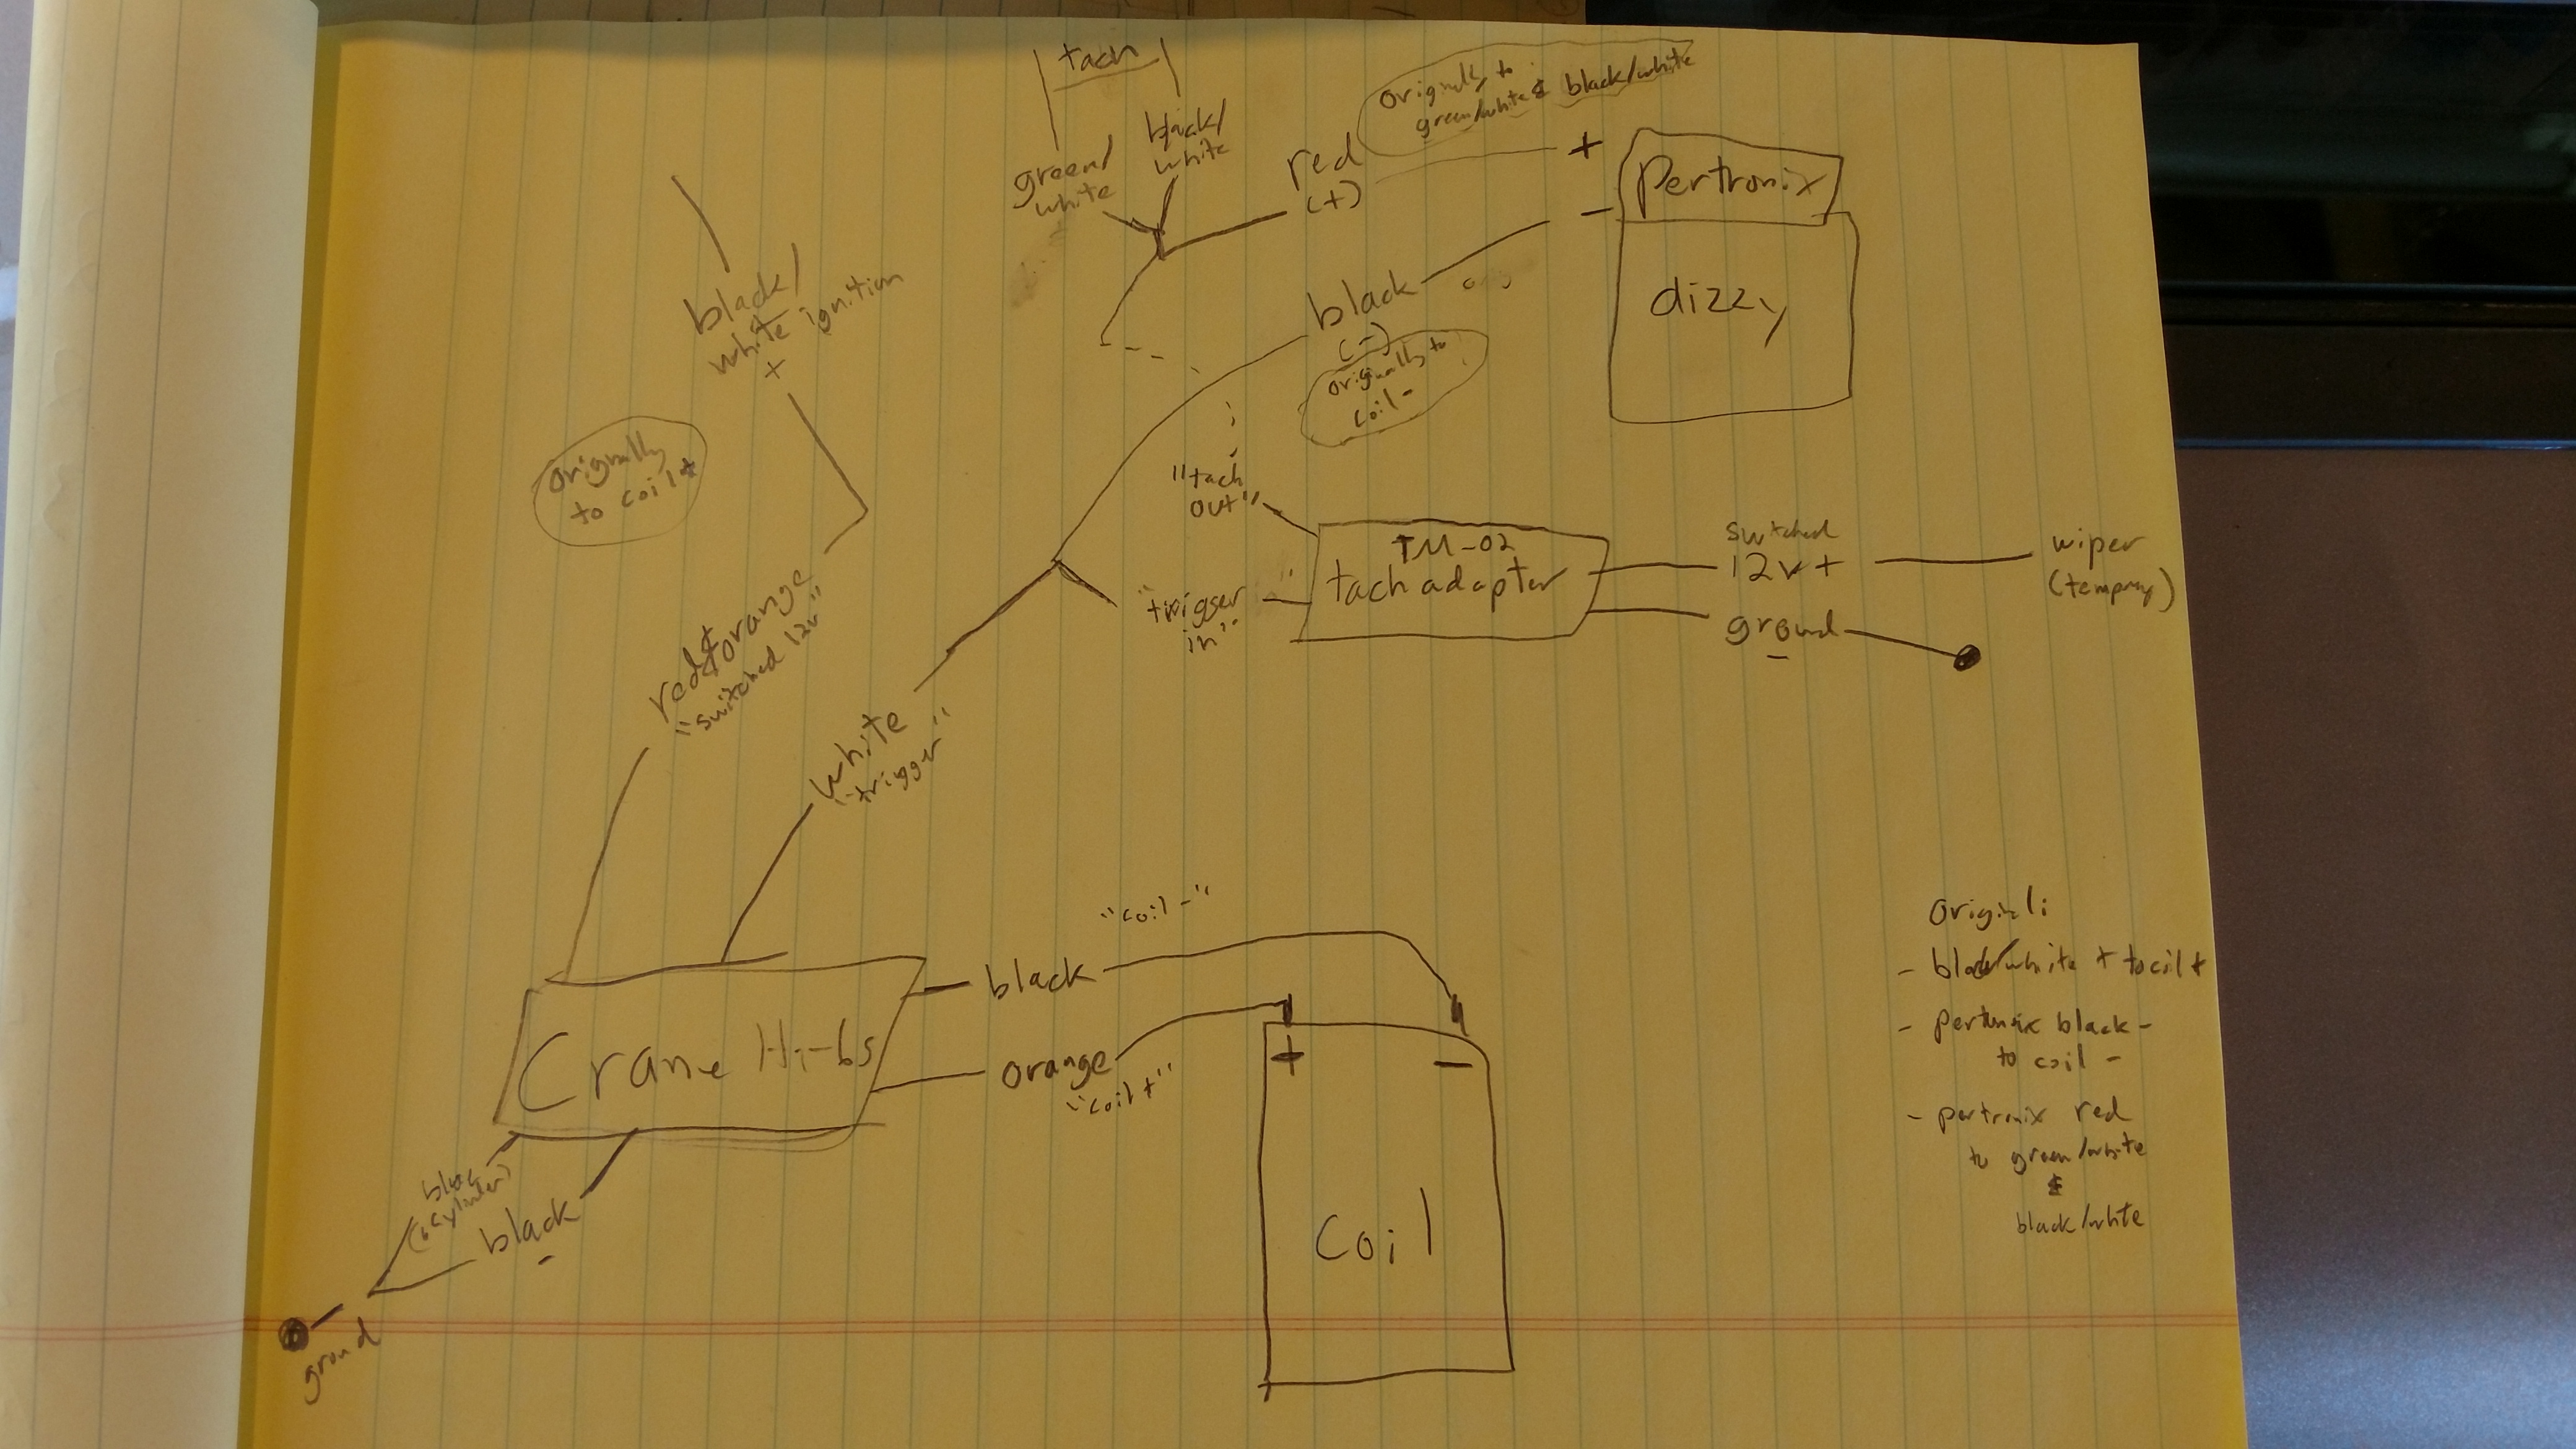 tach
green/
white
black/
white
red
(+)
Originally to
green/white & black/white
+
-
Pertronix
dizzy
black
(-)
originally to
coil -
black/
white ignition
+
originally
to coil +
"tach
out"
TM-02
tach adapter
"trigger
in"
switched
12v +
wiper
ground
-
red & orange
"switched 12v"
white
"trigger"
Crane Hi-6s
black
"coil -"
orange
"coil +"
+
-
Coil
black
-
ground
Original:
- black/white + to coil +
- pertronix black -
to coil -
- pertronix red
to green/white
&
black/white